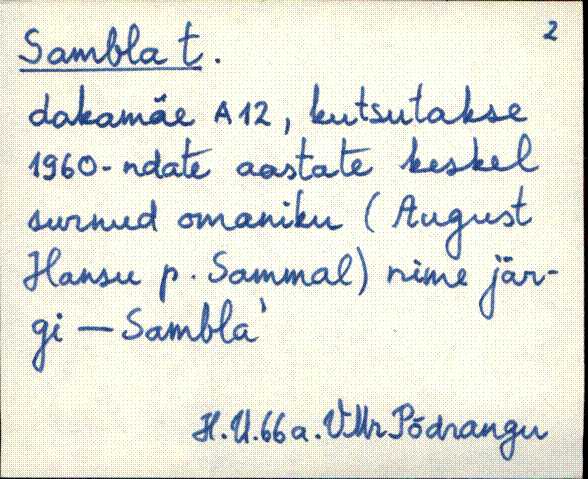 2
Sambla t.
dakamäe A12, kutsutakse
1960-ndate aastate keskel
surnud omaniku (August
Hansu p. Sammal) nime jär-
gi — Sambla'
H.U. 66 a. VMr Põdrangu